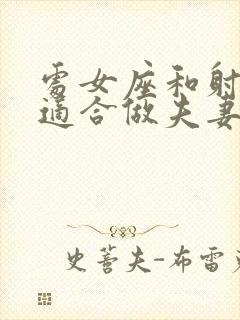 處女座和射
適合做夫妻
史蒈夫-布雷